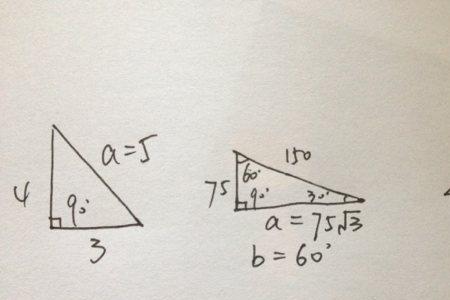 a=5
4
90°
3
150
60°
75
90°
30°
a = 75√3
b = 60°